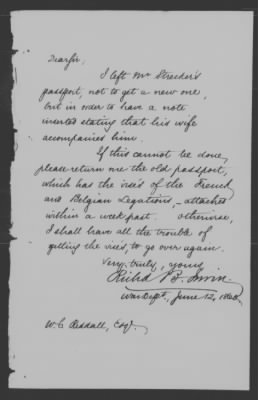 Dear Sir,
I left Mr Strecker's
passport, not to get a new one,
but in order to have a note
inserted stating that his wife
accompanies him.
If this cannot be done,
please return me the old passport,
which has the visés of the French
and Belgian Legations, – attached
within a week past. Otherwise,
I shall have all the trouble of
getting the visés to go over again.
Very truly, yours,
Richd B. Irwin
War Dept, June 12,
W. C. Reddall, Esq.